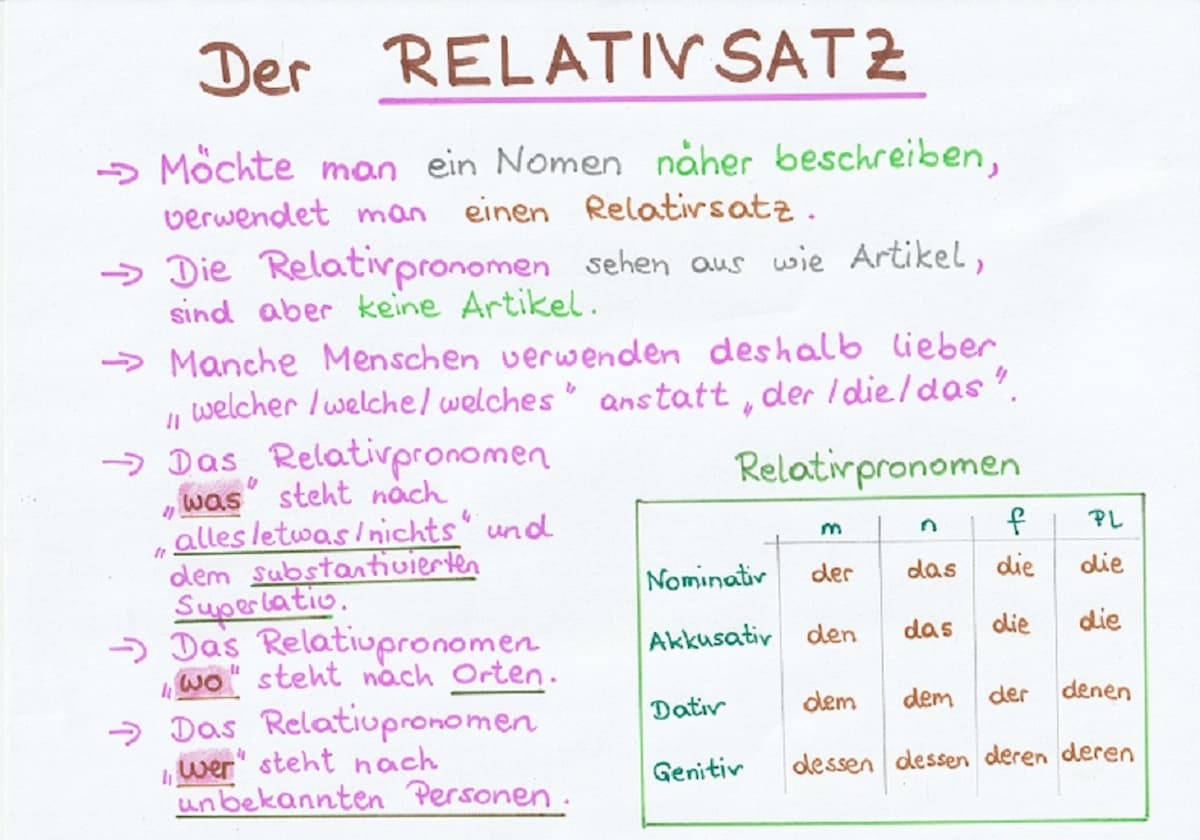 Der RELATIVSATZ
→ Möchte man ein Nomen näher beschreiben,
verwendet man einen Relativsatz.
→ Die Relativpronomen sehen aus wie Artikel,
sind aber keine Artikel.
→ Manche Menschen verwenden deshalb lieber
„welcher/welche/welches" anstatt „der/die/das".
→ Das Relativpronomen
„was" steht nach
„alles/etwas/nichts" und
dem substantivierten
Superlativ.
→ Das Relativpronomen
„wo" steht nach Orten.
→ Das Relativpronomen
„wer" steht nach
unbekannten Personen.
Relativpronomen
m n f PL
Nominativ der das die die
Akkusativ den das die die
Dativ dem dem der denen
Genitiv dessen dessen deren deren